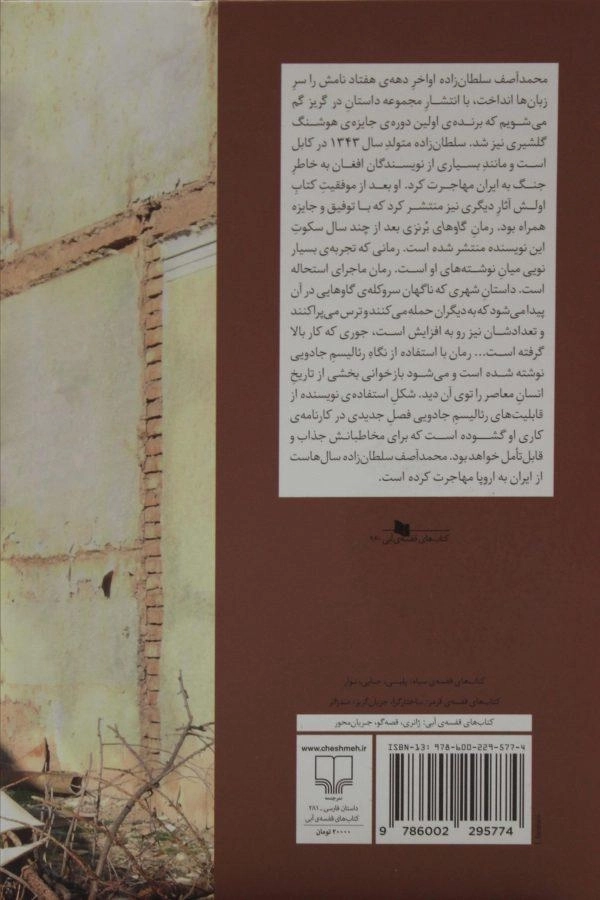 محمدآصف سلطان‌زاده اواخرِ دهه‌ی هفتاد نامش را سرِ
زبان‌ها انداخت، با انتشارِ مجموعه داستان در گریز گم
می‌شویم که برنده‌ی اولین دوره‌ی جایزه‌ی هوشنگ
گلشیری نیز شد. سلطان‌زاده متولدِ سال ۱۳۴۳ در کابل
است و مانندِ بسیاری از نویسندگان افغان به خاطرِ
جنگ به ایران مهاجرت کرد. او بعد از موفقیتِ کتابِ
اولش آثارِ دیگری نیز منتشر کرد که با توفیق و جایزه
همراه بود. رمانِ گاوهای بُرنزی بعد از چند سال سکوتِ
این نویسنده منتشر شده است. رمانی که تجربه‌ی بسیار
نویی میانِ نوشته‌های او است. رمان ماجرای استحاله
است. داستانِ شهری که ناگهان سروکله‌ی گاوهایی در آن
پیدا می‌شود که به دیگران حمله می‌کنند و ترس می‌پراکنند
و تعدادشان نیز رو به افزایش است، جوری که کار بالا
گرفته است... رمان با استفاده از نگاهِ رئالیسمِ جادویی
نوشته شده است و می‌شود بازخوانی بخشی از تاریخِ
انسانِ معاصر را توی آن دید. شکلِ استفاده‌ی نویسنده از
قابلیت‌های رئالیسمِ جادویی فصلِ جدیدی در کارنامه‌ی
کاری او گشوده است که برای مخاطبانش جذاب و
قابل‌تأمل خواهد بود. محمدآصف سلطان‌زاده سال‌هاست
از ایران به اروپا مهاجرت کرده است.
کتاب‌های قفسه‌ی آبی
کتاب‌های قفسه‌ی سیاه: پلیسی، جنایی، نوآر
کتاب‌های قفسه‌ی قرمز: ساختارگرا، جریان‌گریز، ضدژانر
کتاب‌های قفسه‌ی آبی: ژانری، قصه‌گو، جریان‌محور
www.cheshmeh.ir
نشرچشمه
داستان فارسی ـ ۲۸۱
کتاب‌های قفسه‌ی آبی
۲۰۰۰۰ تومان
ISBN-13: 978-600-229-577-4
9 786002 295774